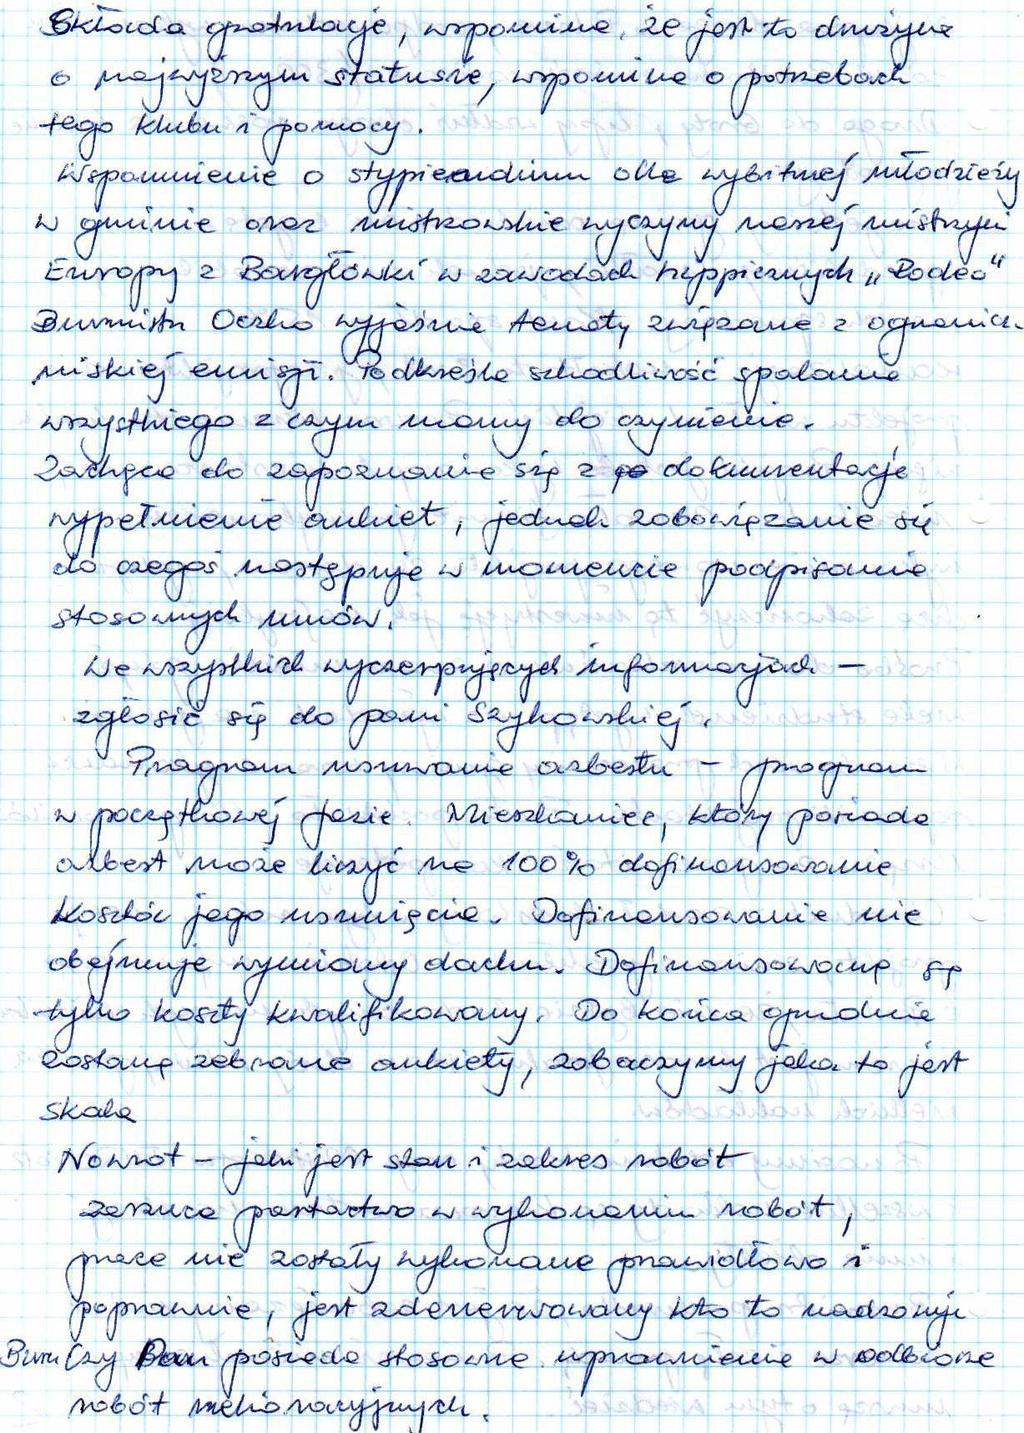 Składa gratulacje, wspomina, że jest to drużyna
o najwyższym statusie, wspomina o potrzebach
tego klubu i pomocy.
Wspomnienie o stypiendium dla wybitnej młodzieży
w gminie oraz mistrzowskie wyczyny naszej mistrzyni
Europy z Bargłówki w zawodach hippicznych „Rodeo"
Burmistrz Oczko wyjaśnia tematy związane z ogranicz.
niskiej emisji. Podkreśla szkodliwość spalania
wszystkiego z czym mamy do czynienia.
Zachęca do zapoznania się z dokumentacją
wypełnienie ankiet, jednak zobowiązanie się
do czegoś następuje w momencie podpisania
stosownych umów.
We wszystkich wyczerpujących informacjach –
zgłosić się do pani Szykowskiej.
Program usuwania azbestu – program
w początkowej fazie. Mieszkaniec, który posiada
azbest może liczyć na 100% dofinansowanie
kosztów jego usunięcia. Dofinansowanie nie
obejmuje wymiany dachu. Dofinansowane są
tylko koszty kwalifikowany. Do końca grudnia
zostaną zebrane ankiety, zobaczymy jaka to jest
skala
Nowrot – jaki jest stan i zakres robót
zarzuca partactwo w wykonaniu robót,
prace nie zostały wykonane prawidłowo i
poprawnie, jest zdenerwowany kto to nadzoruje
Burm Czy Pan posiada stosowne uprawnienia w odbiorze
robót melioracyjnych.